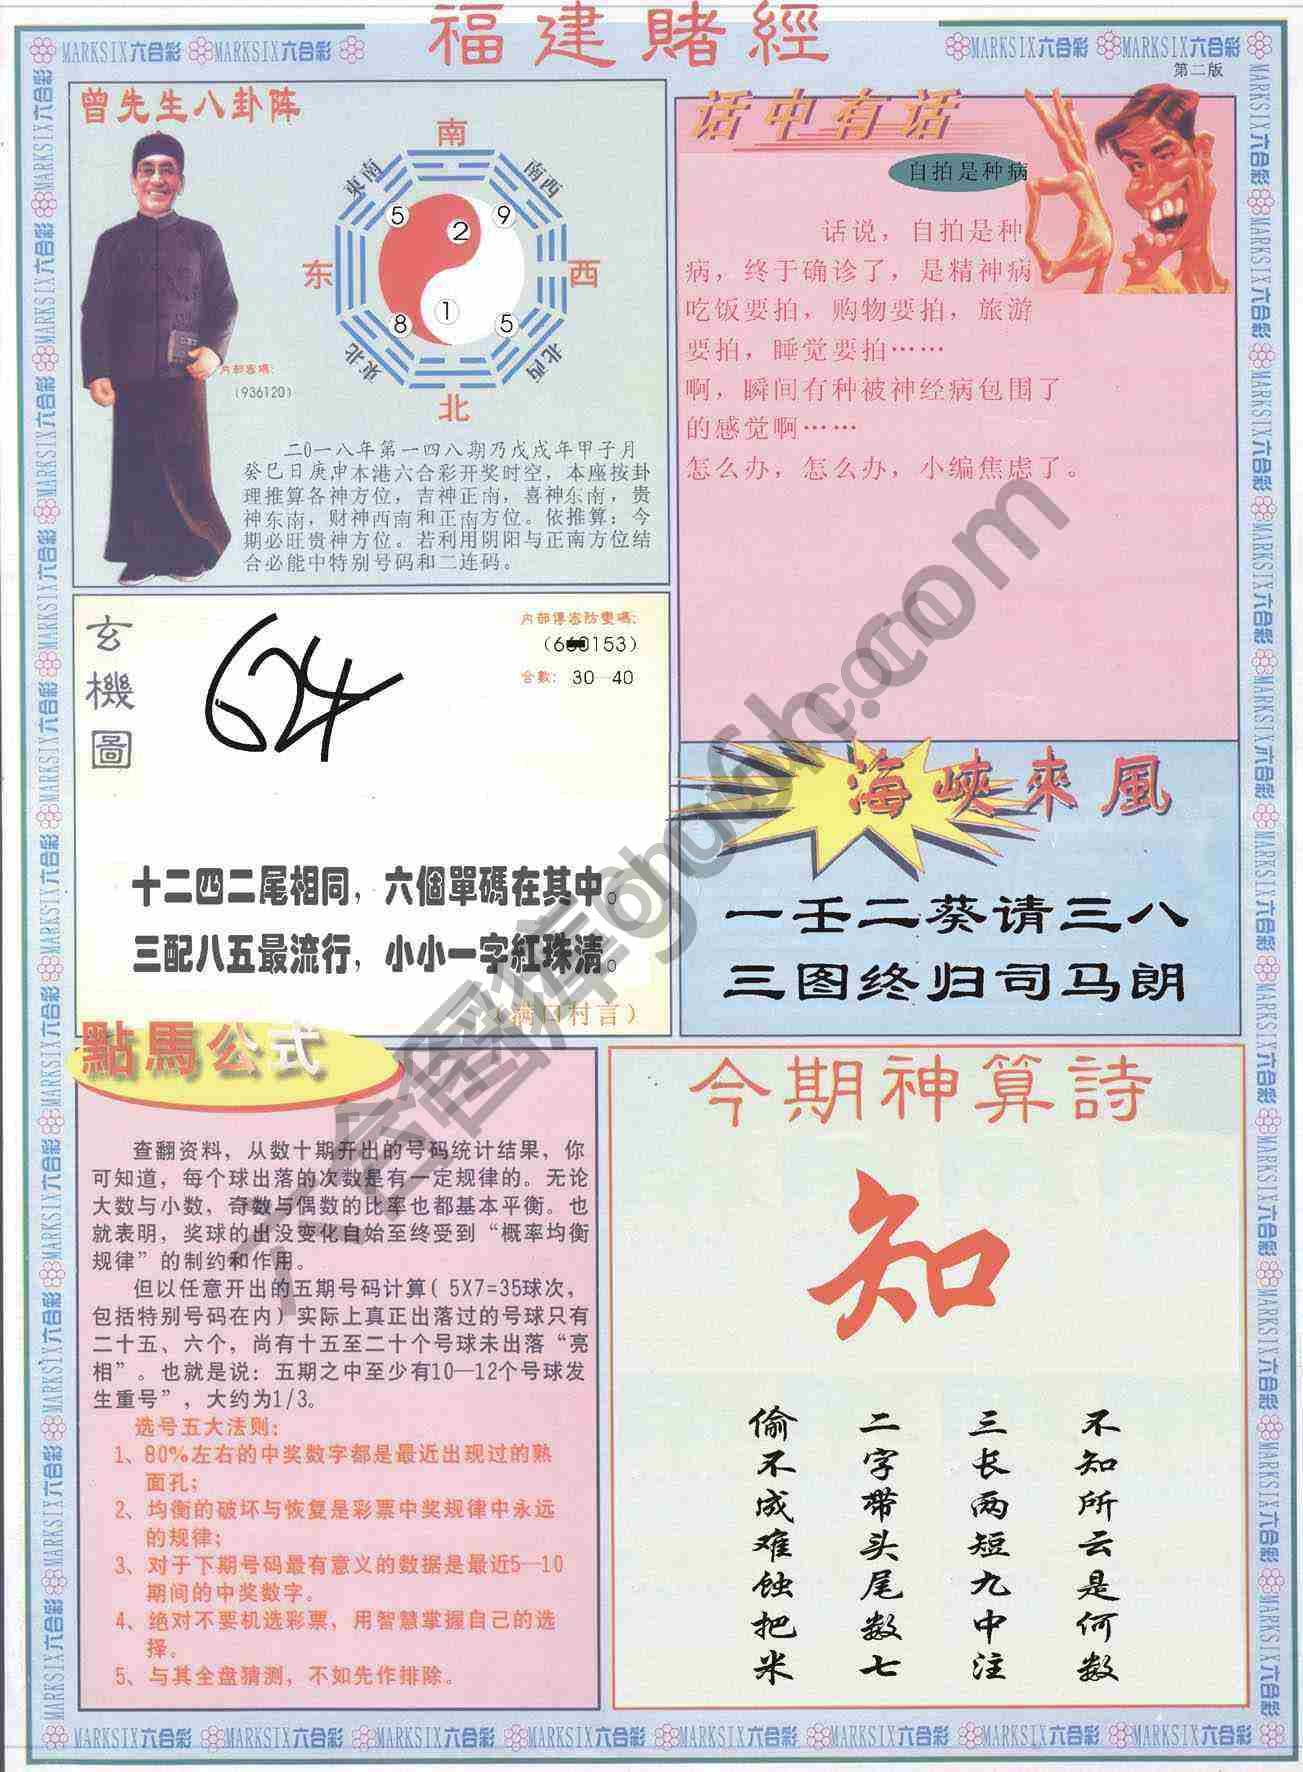 福建賭經
第二版
MARKSIX六合彩 MARKSIX六合彩
MARKSIX六合彩 MARKSIX六合彩
曾先生八卦阵
南
東南
南西
5
2
9
东
西
8
1
5
東北
北西
北
内部密碼:
(936120)
二0一八年第一四八期乃戊戌年甲子月
癸巳日庚申本港六合彩开奖时空，本座按卦
理推算各神方位，吉神正南，喜神东南，贵
神东南，财神西南和正南方位。依推算：今
期必旺贵神方位。若利用阴阳与正南方位结
合必能中特别号码和二连码。
话中有话
自拍是种病
话说，自拍是种
病，终于确诊了，是精神病
吃饭要拍，购物要拍，旅游
要拍，睡觉要拍……
啊，瞬间有种被神经病包围了
的感觉啊……
怎么办，怎么办，小编焦虑了。
玄機圖
624
合數: 30—40
十二四二尾相同，六個單碼在其中。
三配八五最流行，小小一字紅珠清。
（满口村言）
海峽來風
一壬二葵请三八
三图终归司马朗
點馬公式
查翻资料，从数十期开出的号码统计结果，你
可知道，每个球出落的次数是有一定规律的。无论
大数与小数，奇数与偶数的比率也都基本平衡。也
就表明，奖球的出没变化自始至终受到“概率均衡
规律”的制约和作用。
但以任意开出的五期号码计算( 5X7=35球次，
包括特别号码在内）实际上真正出落过的号球只有
二十五、六个，尚有十五至二十个号球未出落“亮
相”。也就是说：五期之中至少有10—12个号球发
生重号”，大约为1/3。
选号五大法则:
1、80%左右的中奖数字都是最近出现过的熟
面孔;
2、均衡的破坏与恢复是彩票中奖规律中永远
的规律;
3、对于下期号码最有意义的数据是最近5—10
期间的中奖数字。
4、绝对不要机选彩票，用智慧掌握自己的选
择。
5、与其全盘猜测，不如先作排除。
今期神算詩
知
不知所云是何数
三长两短九中注
二字带头尾数七
偷不成难蚀把米
MARKSIX六合彩 MARKSIX六合彩 MARKSIX六合彩 MARKSIX六合彩 MARKSIX六合彩 MARKSIX六合彩 MARKSIX六合彩 MARKSIX六合彩